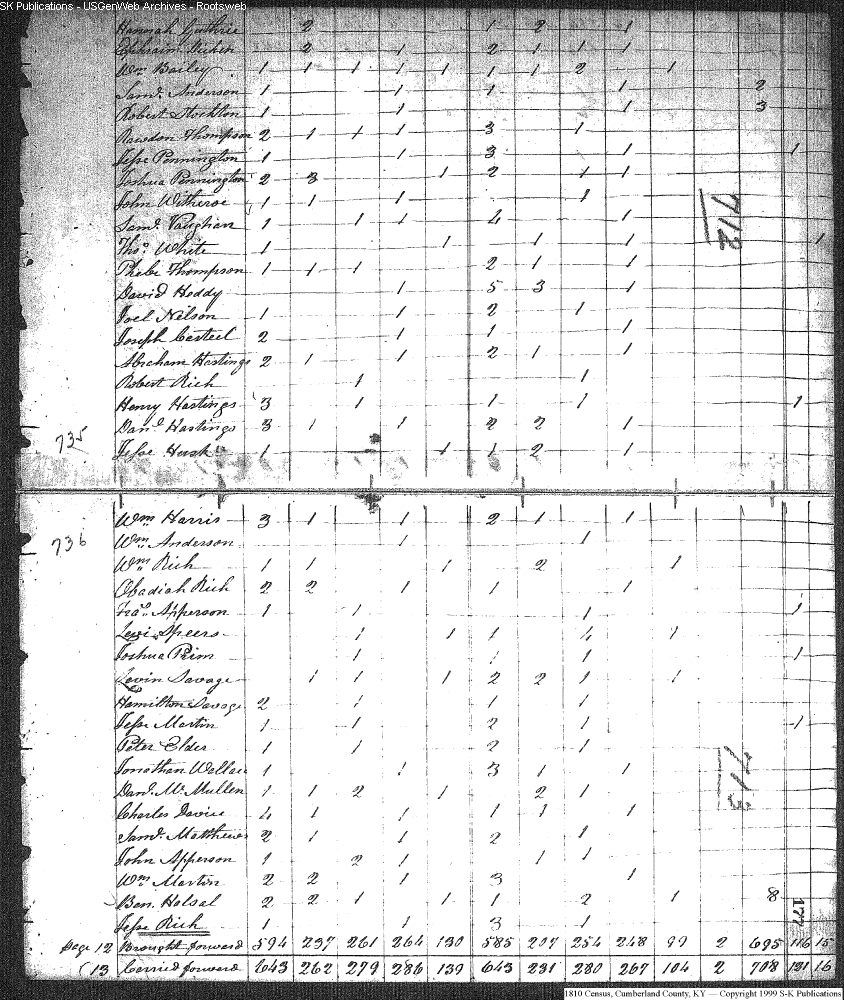 SK Publications - USGenWeb Archives - Rootsweb
Hannah Guthrie 2 1 2 1
Ephraim 2 1 2 1 1 1
Wm Bailey 1 1 1 1 1 1 1 2 1
Saml. Anderson 1 1 1 1 2
Robert Stockton 1 1 1 3
Rawdon Thompson 2 1 1 1 3 1
Jesse Pennington 1 1 3 1 1
Joshua Pennington 2 3 1 2 1 1
John Witheroe 1 1 1 1
Saml. Vaughan 1 1 1 4 1
712
Thos. White 1 1 1 1 1
Phebe Thompson 1 1 1 2 1 1
David Hoddy 1 5 3 1
Joel Nelson 1 1 2 1
Joseph Casteel 2 1 1 1
Abraham Hastings 2 1 1 2 1 1
Robert Rich 1 1
Henry Hastings 3 1 1 1 1
Danl. Hastings 3 1 1 2 2 1
735
Jesse Hush 1 1 1 2 1
Wm Harris 3 1 1 2 1 1
736
Wm Anderson 1 1
Wm Rich 1 1 1 2 1
Obadiah Rich 2 2 1 1 1
Fras. Apperson 1 1 1 1
Levi Speers 1 1 1 4 1
Joshua Prim 1 1 1 1
Levin Savage 1 1 1 2 2 1 1
Hamilton Savage 2 1 1 1
Jesse Martin 1 1 2 1 1
Peter Elder 1 1 2 1
Jonathan Wallace 1 1 3 1 1
713
Danl. McMullen 1 1 2 1 2 1
Charles Davice 4 1 1 1 1 1
Saml. Matthews 2 1 1 2 1
John Apperson 1 2 1 1 1
Wm Martin 2 2 1 3 1
Ben. Halsal 2 2 1 1 1 1 2 1 8
177
Jesse Rich 1 1 3 1
Page 12 Brought forward 594 237 261 264 130 585 207 254 248 99 2 695 116 15
13 Carried forward 643 262 279 286 139 643 231 280 267 104 2 708 121 16
1810 Census, Cumberland County, KY — Copyright 1999 S-K Publications